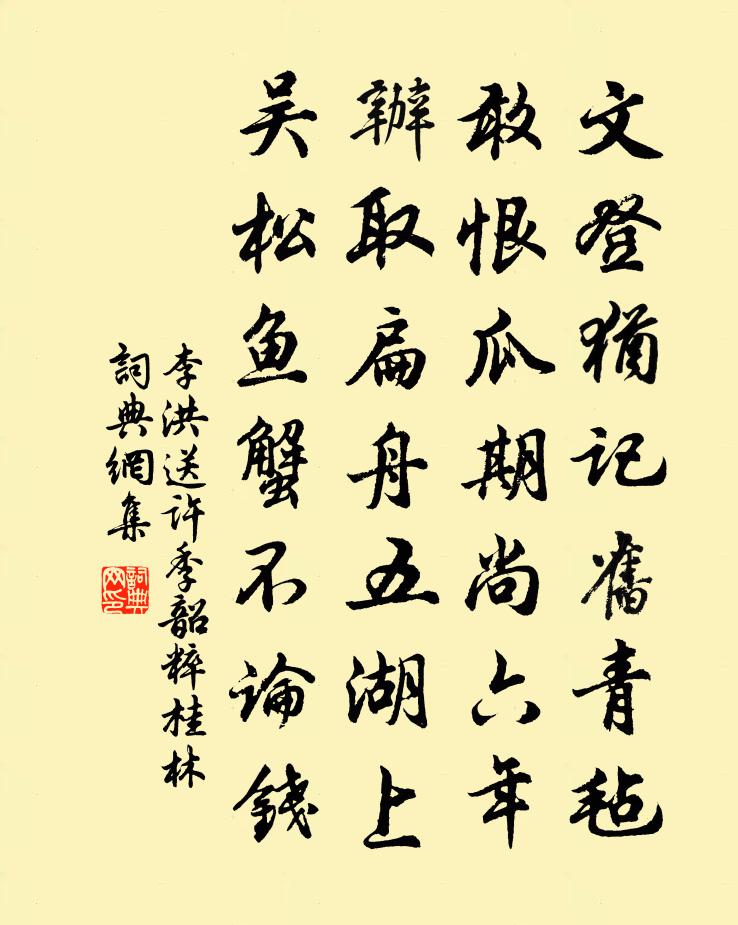 文登猶记舊青毡
敢恨瓜期尚六年
辦取扁舟五湖上
吴松鱼蟹不论錢
李洪送许季韶粹桂林
詞典網集
詞典网印